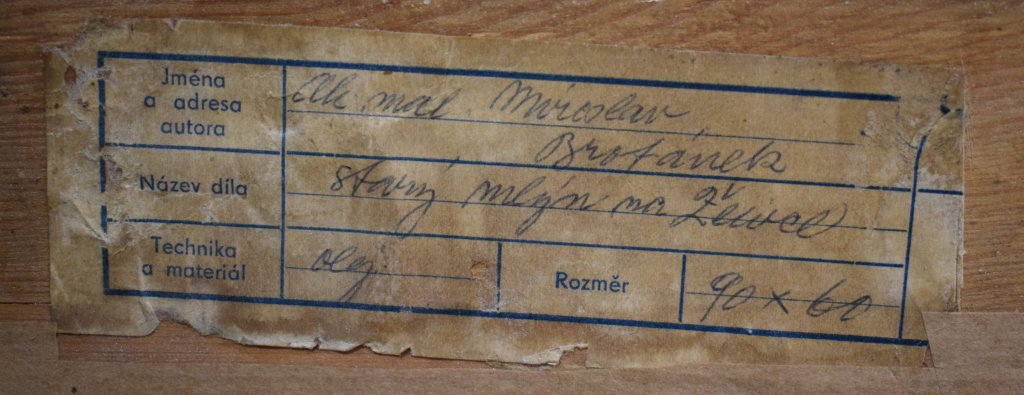 Jména
a adresa
autora
Ak mal. Miroslav
Brotánek
Název díla
starý mlýn na
Technika
a materiál
olej
Rozměr
90 x 60